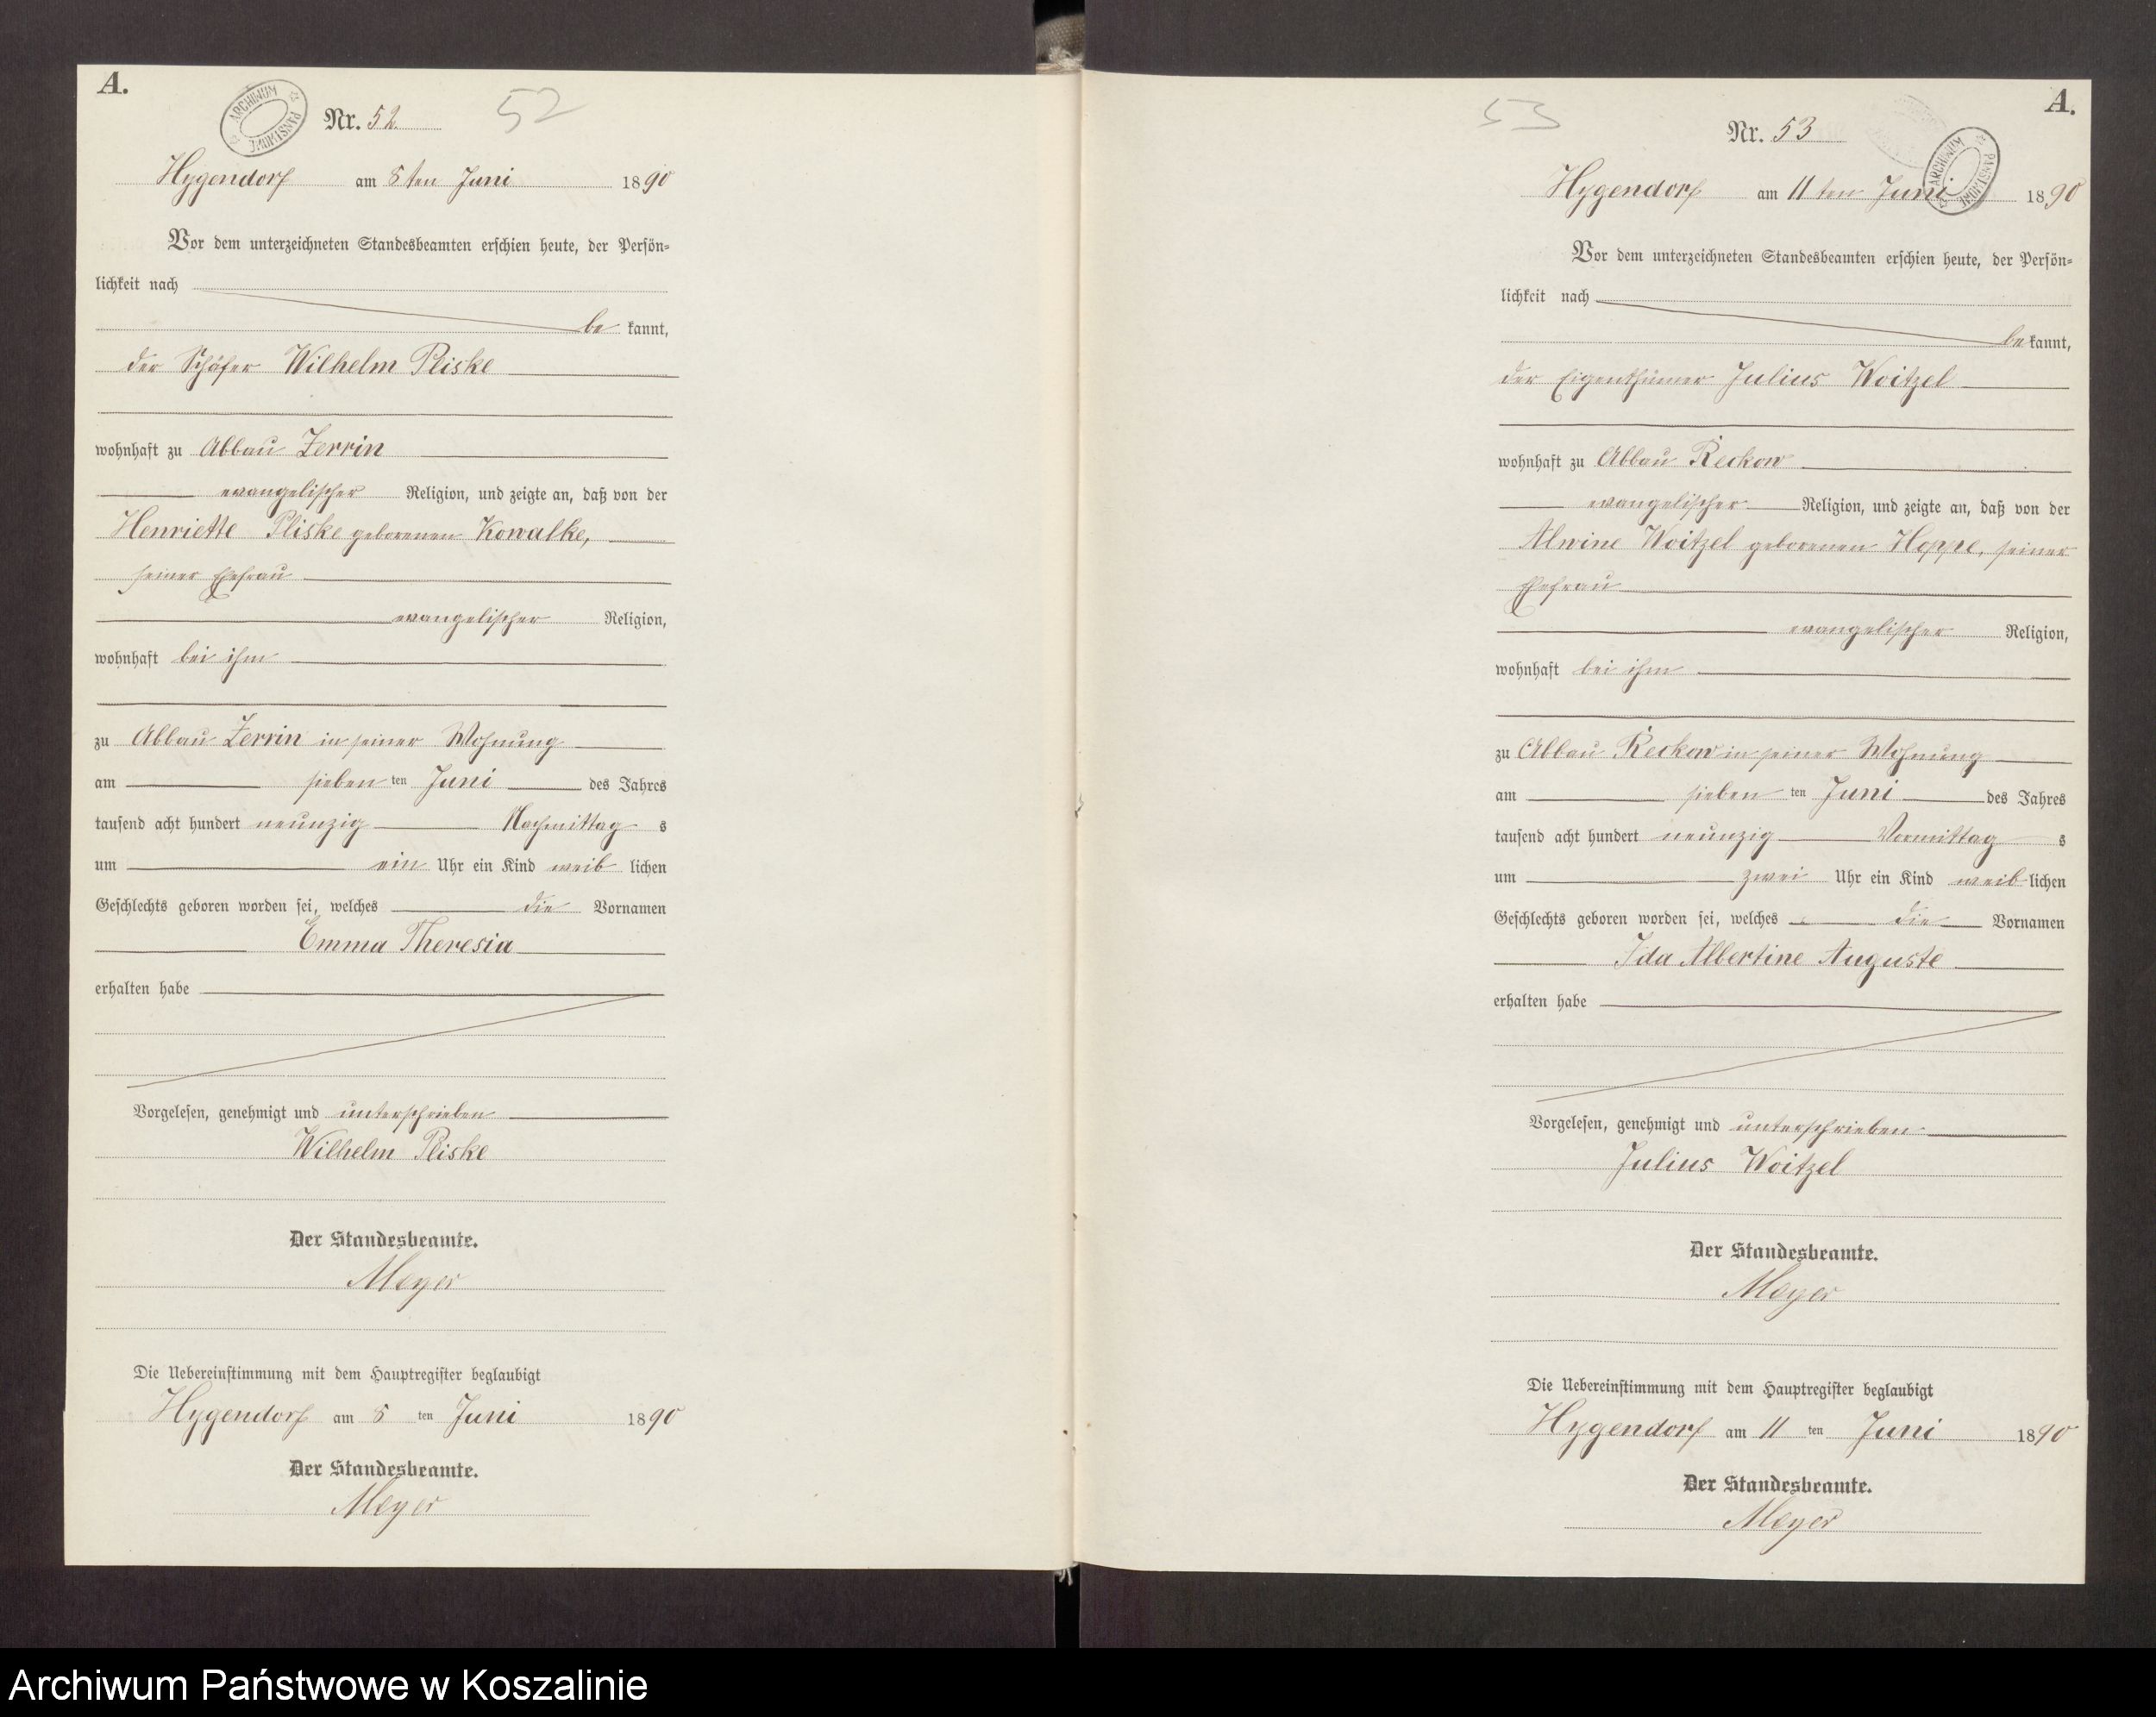 A.
ARCHIWUM PAŃSTWOWE
Nr. 52.
52
Hygendorf am 8ten Juni 1890
Vor dem unterzeichneten Standesbeamten erschien heute, der Persön-
lichkeit nach
be kannt,
der Schäfer Wilhelm Pliske
wohnhaft zu Abbau Zerrin
evangelischer Religion, und zeigte an, daß von der
Henriette Pliske geborenen Kowalke,
seiner Ehefrau
evangelischer Religion,
wohnhaft bei ihm
zu Abbau Zerrin in seiner Wohnung
am sieben ten Juni des Jahres
tausend acht hundert neunzig Nachmittag s
um ein Uhr ein Kind weib lichen
Geschlechts geboren worden sei, welches die Vornamen
Emma Theresia
erhalten habe
Vorgelesen, genehmigt und unterschrieben
Wilhelm Pliske
Der Standesbeamte.
Meyer
Die Uebereinstimmung mit dem Hauptregister beglaubigt
Hygendorf am 8 ten Juni 1890
Der Standesbeamte.
Meyer
A.
53
Nr. 53
ARCHIWUM PAŃSTWOWE
Hygendorf am 11ten Juni 1890
Vor dem unterzeichneten Standesbeamten erschien heute, der Persön-
lichkeit nach
be kannt,
der Eigenthümer Julius Woitzel
wohnhaft zu Abbau Reckow
evangelischer Religion, und zeigte an, daß von der
Alwine Woitzel geborenen Hoppe, seiner
Ehefrau
evangelischer Religion,
wohnhaft bei ihm
zu Abbau Reckow in seiner Wohnung
am sieben ten Juni des Jahres
tausend acht hundert neunzig Vormittag s
um zwei Uhr ein Kind weib lichen
Geschlechts geboren worden sei, welches die Vornamen
Ida Albertine Auguste
erhalten habe
Vorgelesen, genehmigt und unterschrieben
Julius Woitzel
Der Standesbeamte.
Meyer
Die Uebereinstimmung mit dem Hauptregister beglaubigt
Hygendorf am 11 ten Juni 1890
Der Standesbeamte.
Meyer
Archiwum Państwowe w Koszalinie